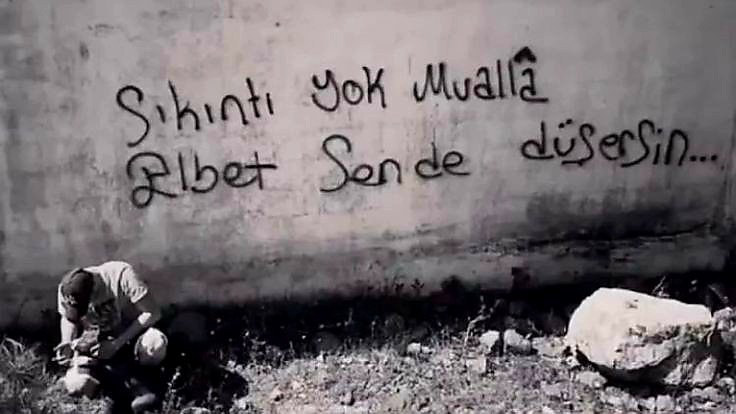 Sıkıntı yok Muallâ
Elbet Sende düşersin...